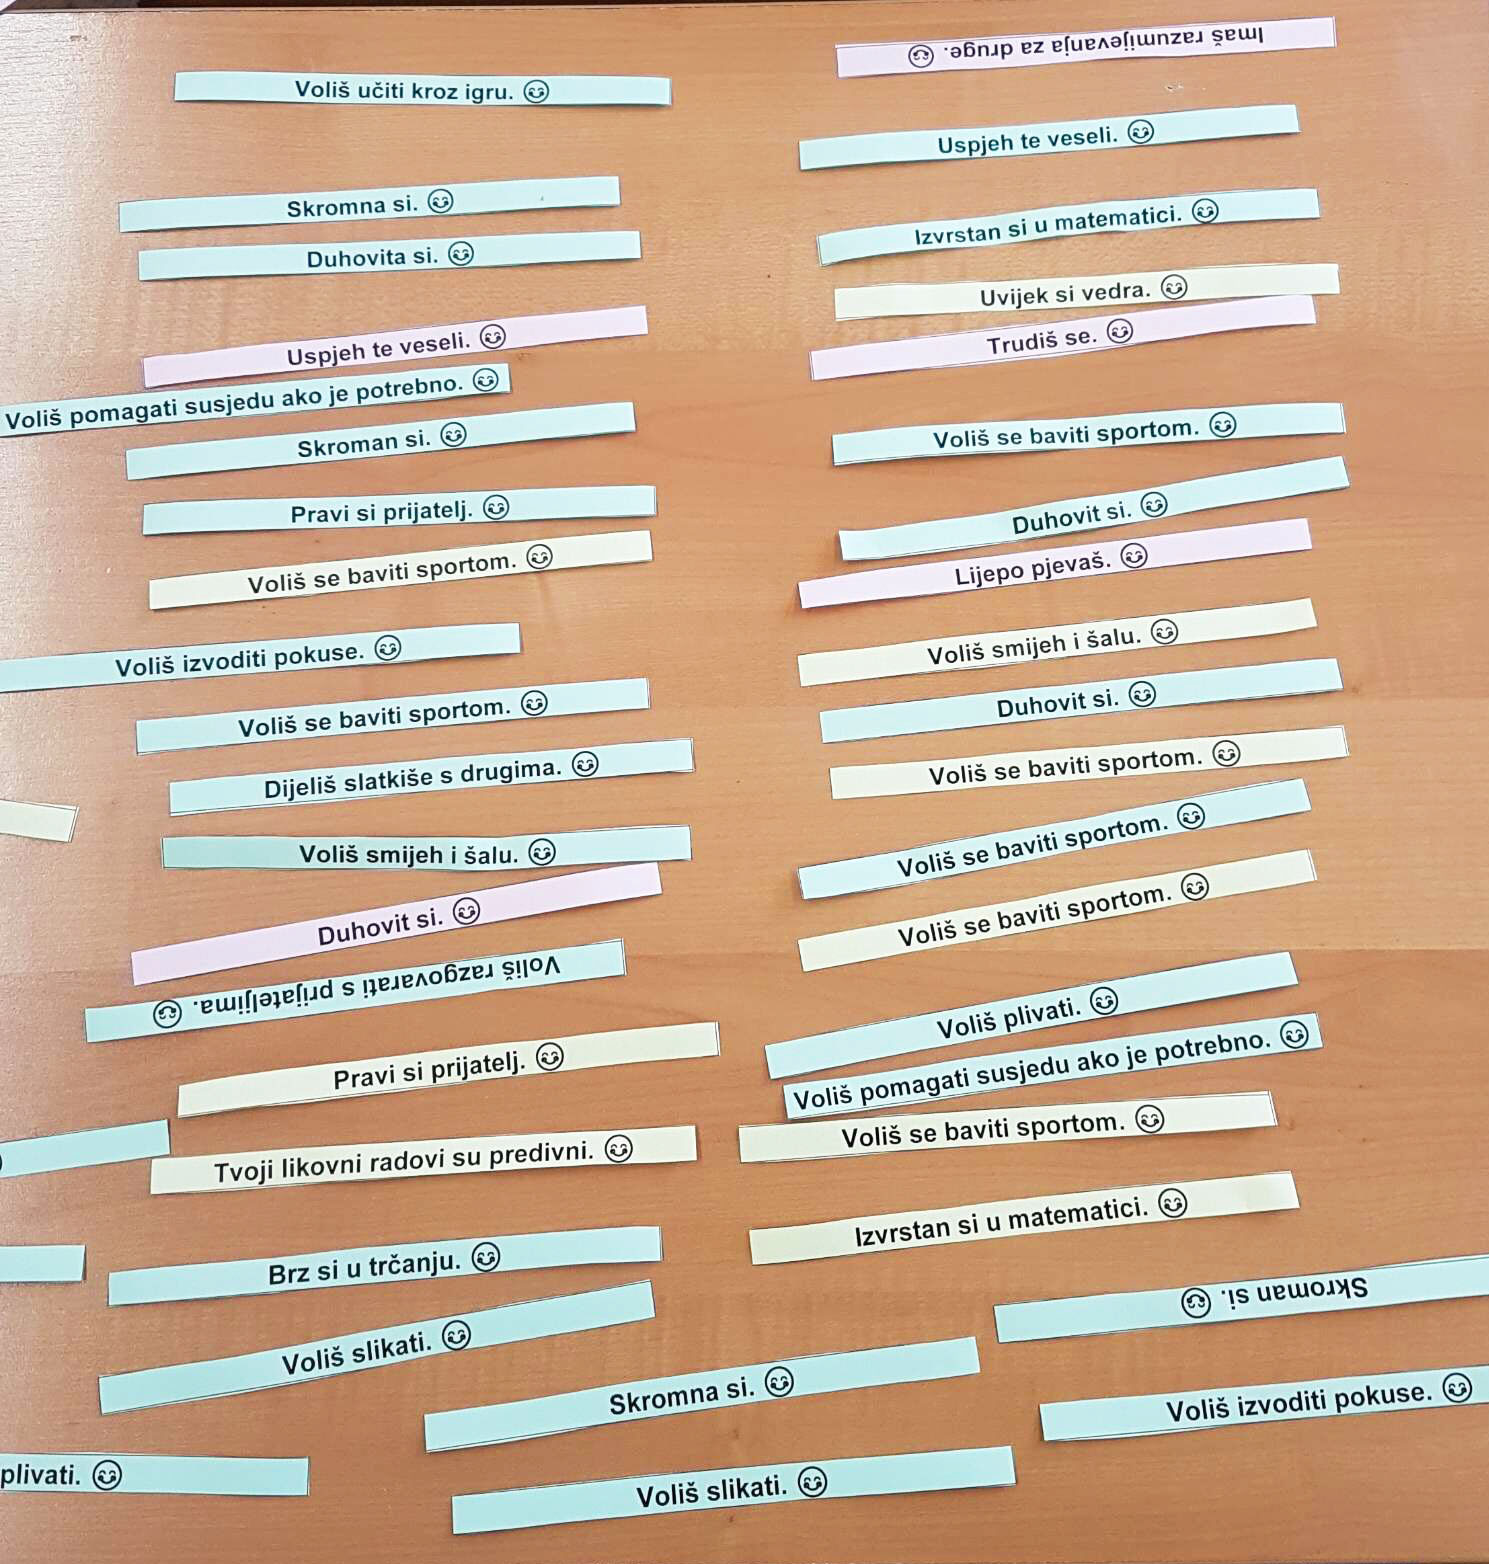 Voliš učiti kroz igru.
Skromna si.
Duhovita si.
Uspjeh te veseli.
Voliš pomagati susjedu ako je potrebno.
Skroman si.
Pravi si prijatelj.
Voliš se baviti sportom.
Voliš izvoditi pokuse.
Voliš se baviti sportom.
Dijeliš slatkiše s drugima.
Voliš smijeh i šalu.
Duhovit si.
Voliš razgovarati s prijateljima.
Pravi si prijatelj.
Tvoji likovni radovi su predivni.
Brz si u trčanju.
Voliš slikati.
plivati.
Imaš razumijevanja za druge.
Uspjeh te veseli.
Izvrstan si u matematici.
Uvijek si vedra.
Trudiš se.
Voliš se baviti sportom.
Duhovit si.
Lijepo pjevaš.
Voliš smijeh i šalu.
Duhovit si.
Voliš se baviti sportom.
Voliš se baviti sportom.
Voliš se baviti sportom.
Voliš plivati.
Voliš pomagati susjedu ako je potrebno.
Voliš se baviti sportom.
Izvrstan si u matematici.
Skroman si.
Skromna si.
Voliš izvoditi pokuse.
Voliš slikati.